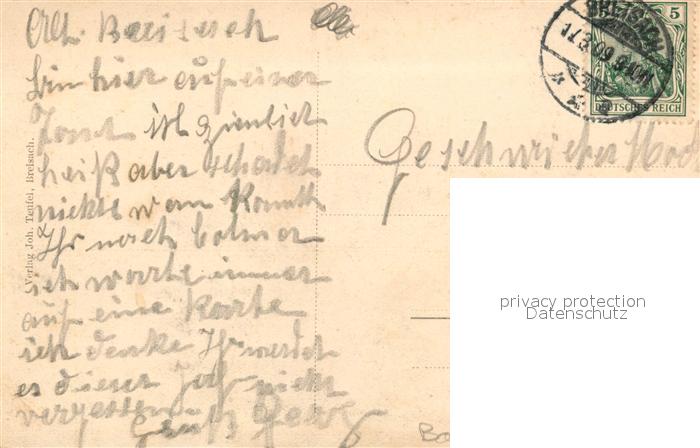 Alt Breisach
bin hier auf einer
Tour ist ziemlich
heiß aber schadet
nichts wan kommth
Ihr nach Colmar
ich warte immer
auf eine Karte
ich denke Ihr werdet
es dieses Jahr nicht
vergessen
Gruß
Geschwister
Verlag Joh. Teufel, Breisach.
BREISACH
17.3.09
5
DEUTSCHES REICH
privacy protection
Datenschutz